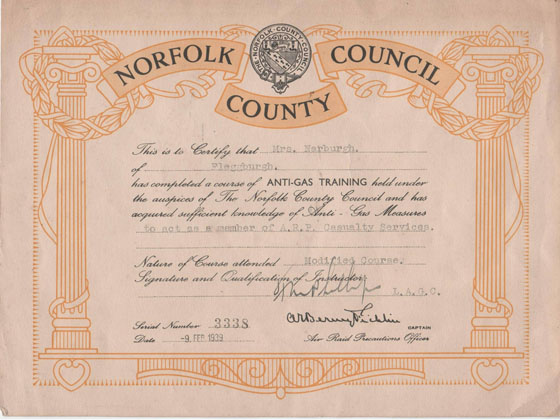 NORFOLK COUNTY COUNCIL
NORFOLK COUNTY COUNCIL
This is to Certify that Mrs. Narburgh.
of Fleggburgh.
has completed a course of ANTI-GAS TRAINING held under
the auspices of The Norfolk County Council and has
acquired sufficient knowledge of Anti - Gas Measures
to act as a member of A.R.P. Casualty Services.
Nature of Course attended Modified Course.
Signature and Qualification of Instructor
L.A.G.C.
Serial Number 3338
CAPTAIN
Date -9 FEB 1939 Air Raid Precautions Officer